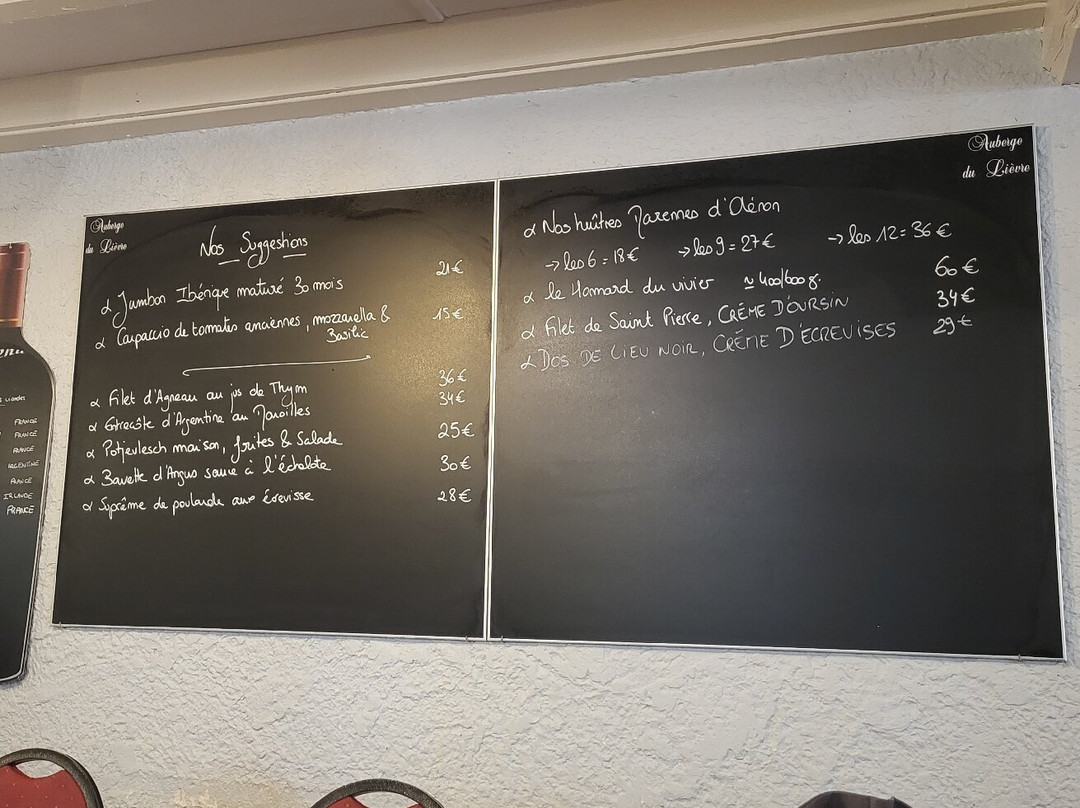 Auberge
du Lièvre
Nos Suggestions
α Jambon Ibérique maturé 30 mois 21€
α Carpaccio de tomates anciennes, mozzarella & 15€
Basilic
α Filet d'Agneau au jus de Thym 36€
α Entrecôte d'Argentine au Maroilles 34€
α Potjevlesch maison, frites & Salade 25€
α Bavette d'Angus sauce à l'échalote 30€
α Suprême de poularde aux écrevisse 28€
Auberge
du Lièvre
α Nos huîtres Marennes d'Oléron
→ les 6 = 18€ → les 9 = 27€ → les 12 = 36€
α le Homard du vivier ≃ 400/600g. 60€
α Filet de Saint Pierre, CRÈME D'OURSIN 34€
α DOS DE LIEU NOIR, CRÈME D'ECREVISES 29€
FRANCE
FRANCE
FRANCE
ARGENTINE
FRANCE
IRLANDE
FRANCE